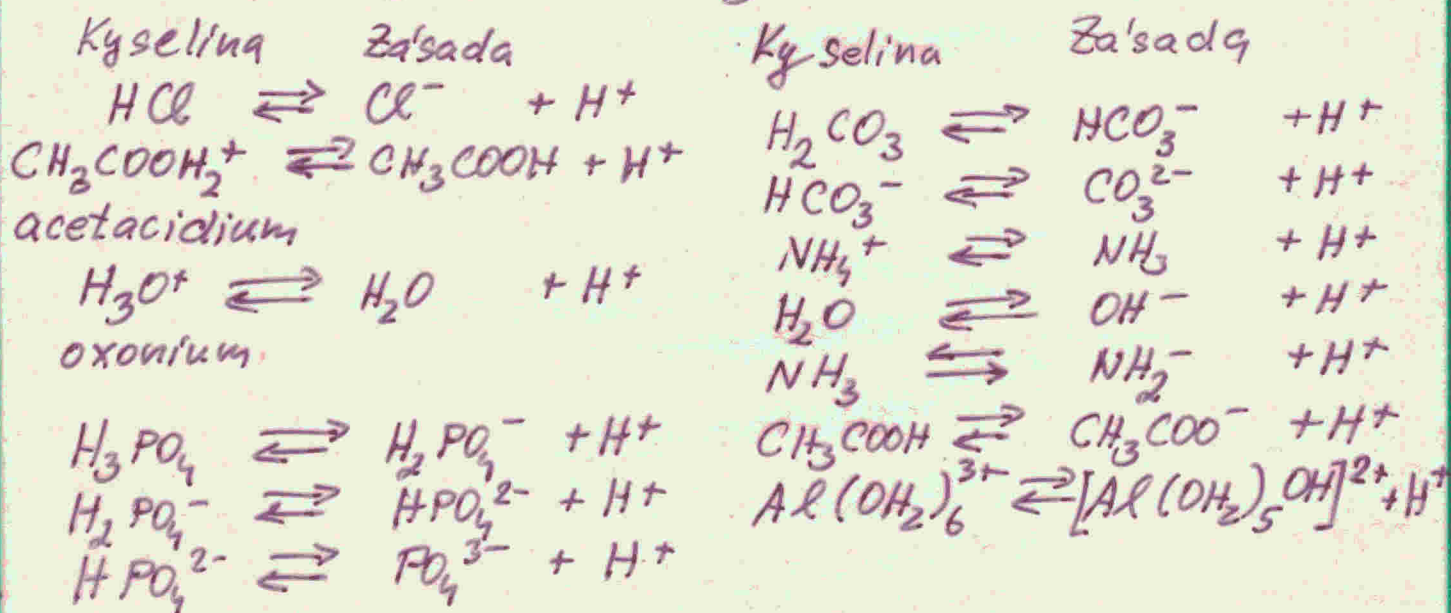 Kyselina Zásada
HCl ⇌ Cl⁻ + H⁺
CH₃COOH₂⁺ ⇌ CH₃COOH + H⁺
acetacidium
H₃O⁺ ⇌ H₂O + H⁺
oxonium
H₃PO₄ ⇌ H₂PO₄⁻ + H⁺
H₂PO₄⁻ ⇌ HPO₄²⁻ + H⁺
HPO₄²⁻ ⇌ PO₄³⁻ + H⁺
Kyselina Zásada
H₂CO₃ ⇌ HCO₃⁻ + H⁺
HCO₃⁻ ⇌ CO₃²⁻ + H⁺
NH₄⁺ ⇌ NH₃ + H⁺
H₂O ⇌ OH⁻ + H⁺
NH₃ ⇆ NH₂⁻ + H⁺
CH₃COOH ⇌ CH₃COO⁻ + H⁺
Al(OH₂)₆³⁺ ⇌ [Al(OH₂)₅OH]²⁺ + H⁺